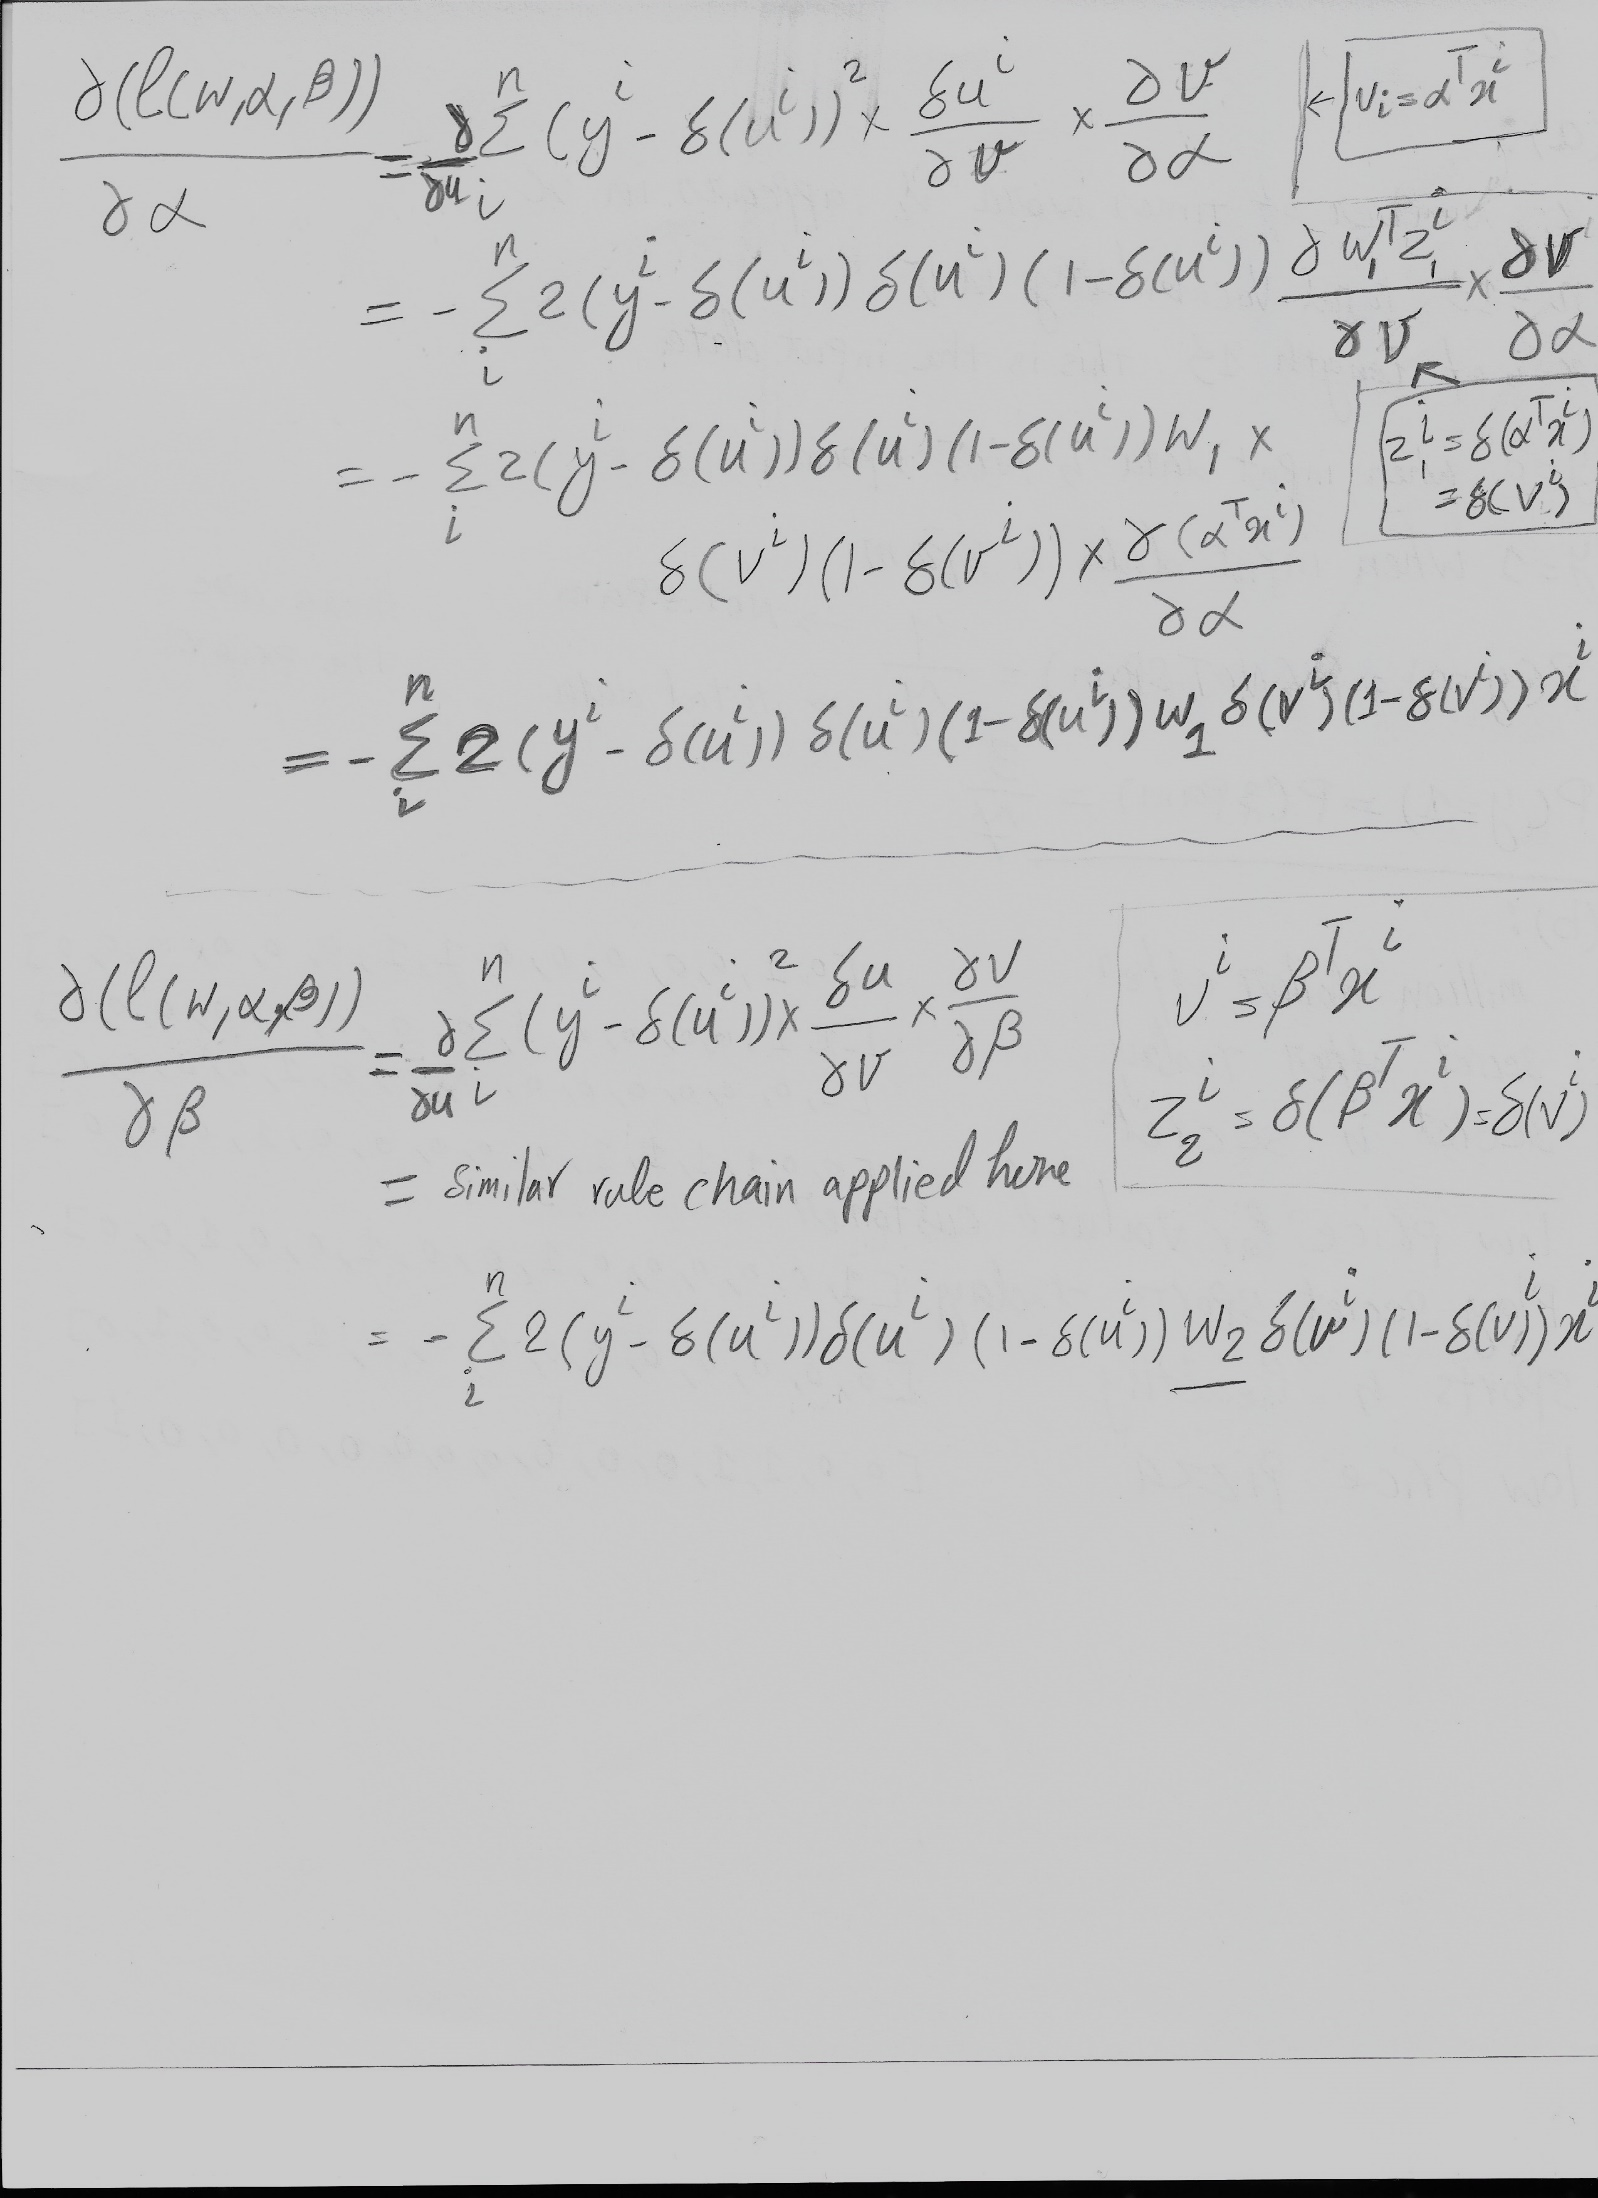 ∂(ℓ(w,α,β)) / ∂α = ∂/∂u Σ_i^n (y^i - δ(u^i))^2 × δu^i/∂v × ∂v/∂α ← v_i = α^T x^i
= - Σ_i^n 2(y^i - δ(u^i)) δ(u^i) (1-δ(u^i)) ∂w_1^T z_1^i/∂v × ∂v/∂α
= - Σ_i^n 2(y^i - δ(u^i)) δ(u^i) (1-δ(u^i)) w_1 ×
z_1^i = δ(α^T x^i)
= δ(v^i)
δ(v^i)(1-δ(v^i)) × ∂(α^T x^i)/∂α
= - Σ_i^n 2 (y^i - δ(u^i)) δ(u^i) (1-δ(u^i)) w_1 δ(v^i) (1-δ(v^i)) x^i
∂(ℓ(w,α,β)) / ∂β = ∂/∂u Σ_i^n (y^i - δ(u^i))^2 × δu/∂v × ∂v/∂β
v^i = β^T x^i
z_2^i = δ(β^T x^i) = δ(v^i)
= similar rule chain applied here
= - Σ_i^n 2(y^i - δ(u^i)) δ(u^i) (1-δ(u^i)) w_2 δ(v^i) (1-δ(v^i)) x^i